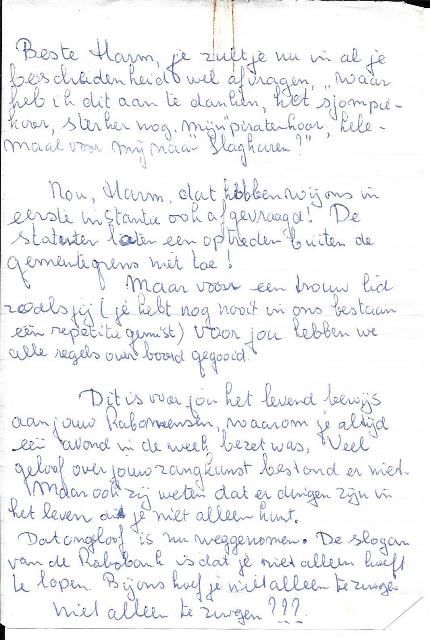 Beste Harm, je zult je nu in al je
bescheidenheid wel afvragen, "waar
heb ik dit aan te danken, het sjompie-
koor, sterker nog, mijn "piratenkoor", hele-
maal voor mij naar Slagharen?"
Nou, Harm, dat hebben wij ons in
eerste instantie ook afgevraagd! De
statuten laten een optreden buiten de
gemeentegrens niet toe!
Maar voor een trouw lid
zoals jij (je hebt nog nooit in ons bestaan
één repetitie gemist) voor jou hebben we
alle regels over boord gegooid.
Dit is voor jou het levend bewijs
aan jouw Rabomensen, waarom je altijd
één avond in de week bezet was. Veel
geloof over jouw zangkunst bestond er niet.
Maar ook zij weten dat er dingen zijn in
het leven die je niet alleen kunt.
Dat ongeloof is nu weggenomen. De slogan
van de Rabobank is dat je niet alleen hoeft
te lopen. Bij ons hoef je niet alleen te zingen.
Niet alleen te zingen???